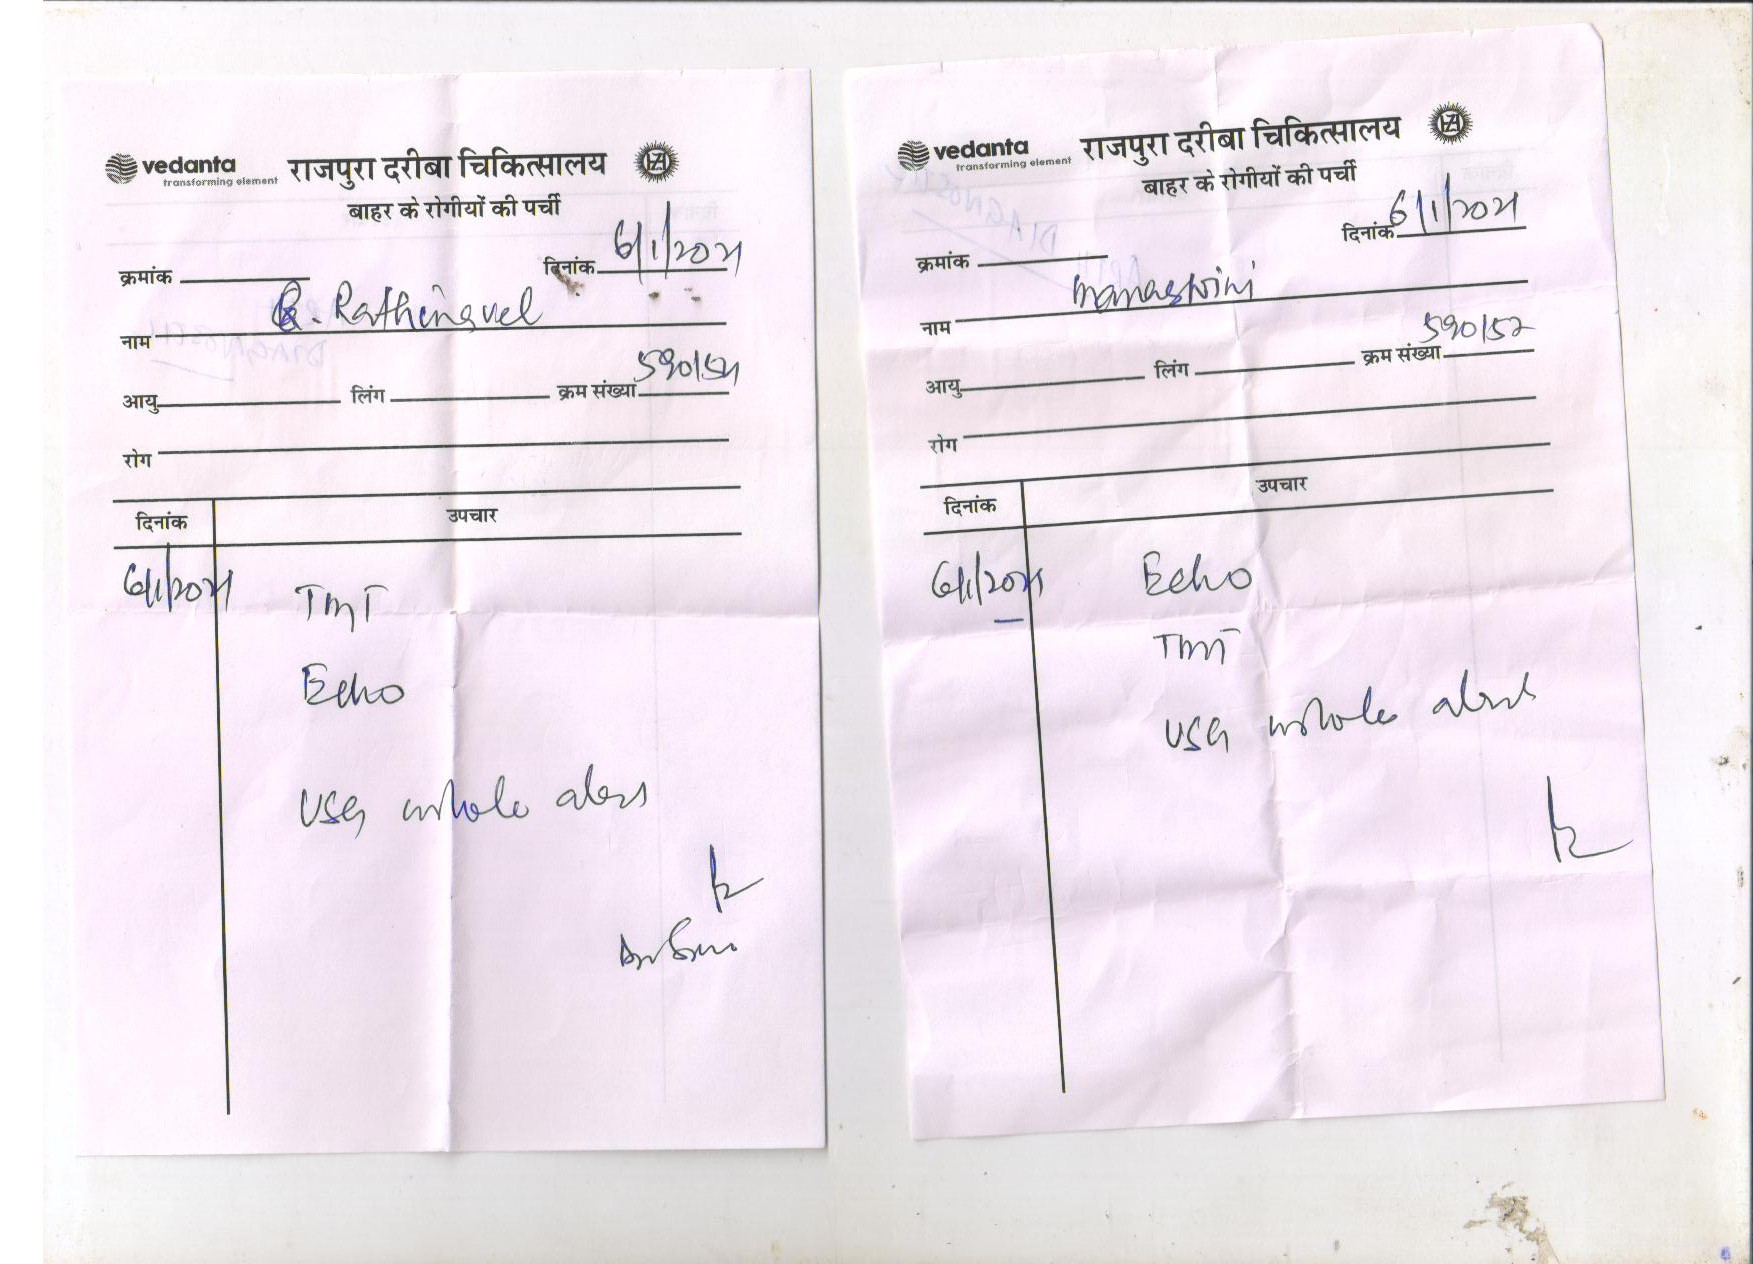 vedanta
transforming element
राजपुरा दरीबा चिकित्सालय
बाहर के रोगीयों की पर्ची
दिनांक 6/1/2021
क्रमांक
नाम R. Rathinavel
आयु लिंग क्रम संख्या 590/54
रोग
दिनांक उपचार
6/1/2021 TMT
Echo
USG whole abs
vedanta
transforming element
राजपुरा दरीबा चिकित्सालय
बाहर के रोगीयों की पर्ची
दिनांक 6/1/2021
क्रमांक
नाम manaswini
आयु लिंग क्रम संख्या 590/52
रोग
दिनांक उपचार
6/1/2021 Echo
TMT
USG whole